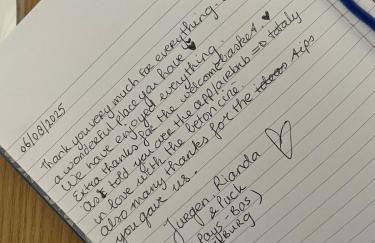 06/08/2025
Thank you very much for everything -
a wonderful place you have
We have enjoyed everything.
Extra thanks for the welcomebasket.
as I told you over the app/airbnb =D totaly
in love with the beton ciré.
also many thanks for the tips
you gave us.
Jurgen, Rianda
& Puck
(Pays-Bas,
BURG)